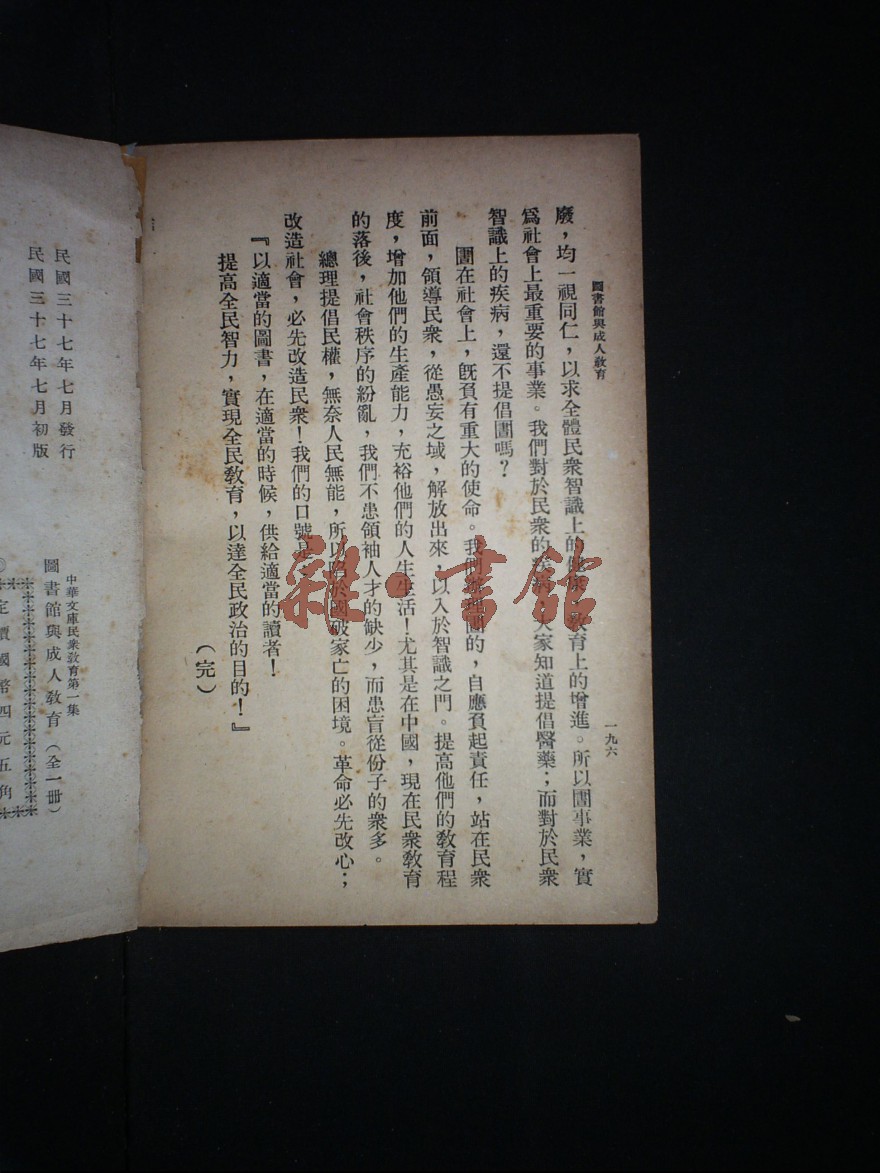 圖書館與成人教育
一九六
廢，均一視同仁，以求全體民衆智識上的健康，教育上的增進。所以圕事業，實
爲社會上最重要的事業。我們對於民衆的疾病，大家知道提倡醫藥；而對於民衆
智識上的疾病，還不提倡圕嗎？
圕在社會上，旣負有重大的使命。我們辦理圕的，自應負起責任，站在民衆
前面，領導民衆，從愚妄之域，解放出來，以入於智識之門。提高他們的教育程
度，增加他們的生產能力，充裕他們的人生生活！尤其是在中國，現在民衆教育
的落後，社會秩序的紛亂，我們不患領袖人才的缺少，而患盲從份子的衆多。
總理提倡民權，無奈人民無能，所以陷於國破家亡的困境。革命必先改心；
改造社會，必先改造民衆！我們的口號是：
『以適當的圖書，在適當的時候，供給適當的讀者！
提高全民智力，實現全民教育，以達全民政治的目的！』
（完）
雜·書館
中華文庫民衆教育第一集
圖書館與成人教育（全一册）
定價國幣四元五角
民國三十七年七月發行
民國三十七年七月初版